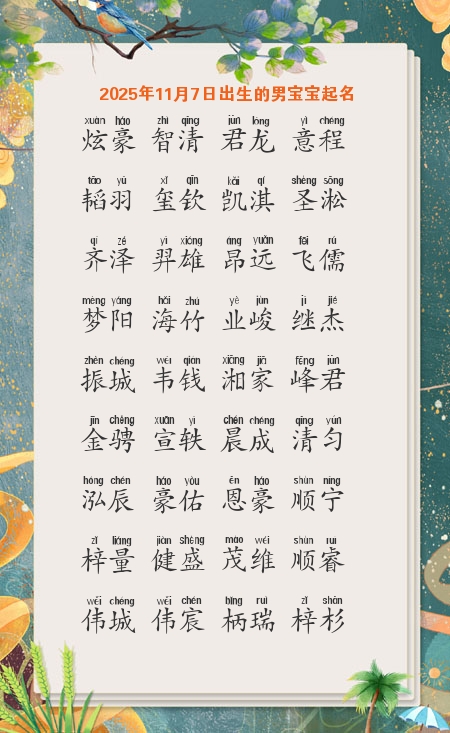 2025年11月7日出生的男宝宝起名
xuàn háo zhì qīng jūn lóng yì chéng
炫豪 智清 君龙 意程
tāo yǔ xǐ qīn kǎi qí shèng sōng
韬羽 玺钦 凯淇 圣淞
qí zé yì xióng áng yuǎn fēi rú
齐泽 羿雄 昂远 飞儒
mèng yáng hǎi zhú yè jùn jì jié
梦阳 海竹 业峻 继杰
zhèn chéng wéi qián xiāng jiā fēng jūn
振城 韦钱 湘家 峰君
jīn chěng xuān yì chén chéng qīng yún
金骋 宣轶 晨成 清匀
hóng chén háo yòu ēn háo shùn níng
泓辰 豪佑 恩豪 顺宁
zǐ liáng jiàn shèng mào wéi shùn ruì
梓量 健盛 茂维 顺睿
wěi chéng wěi chén bǐng ruì zǐ shān
伟城 伟宸 柄瑞 梓杉